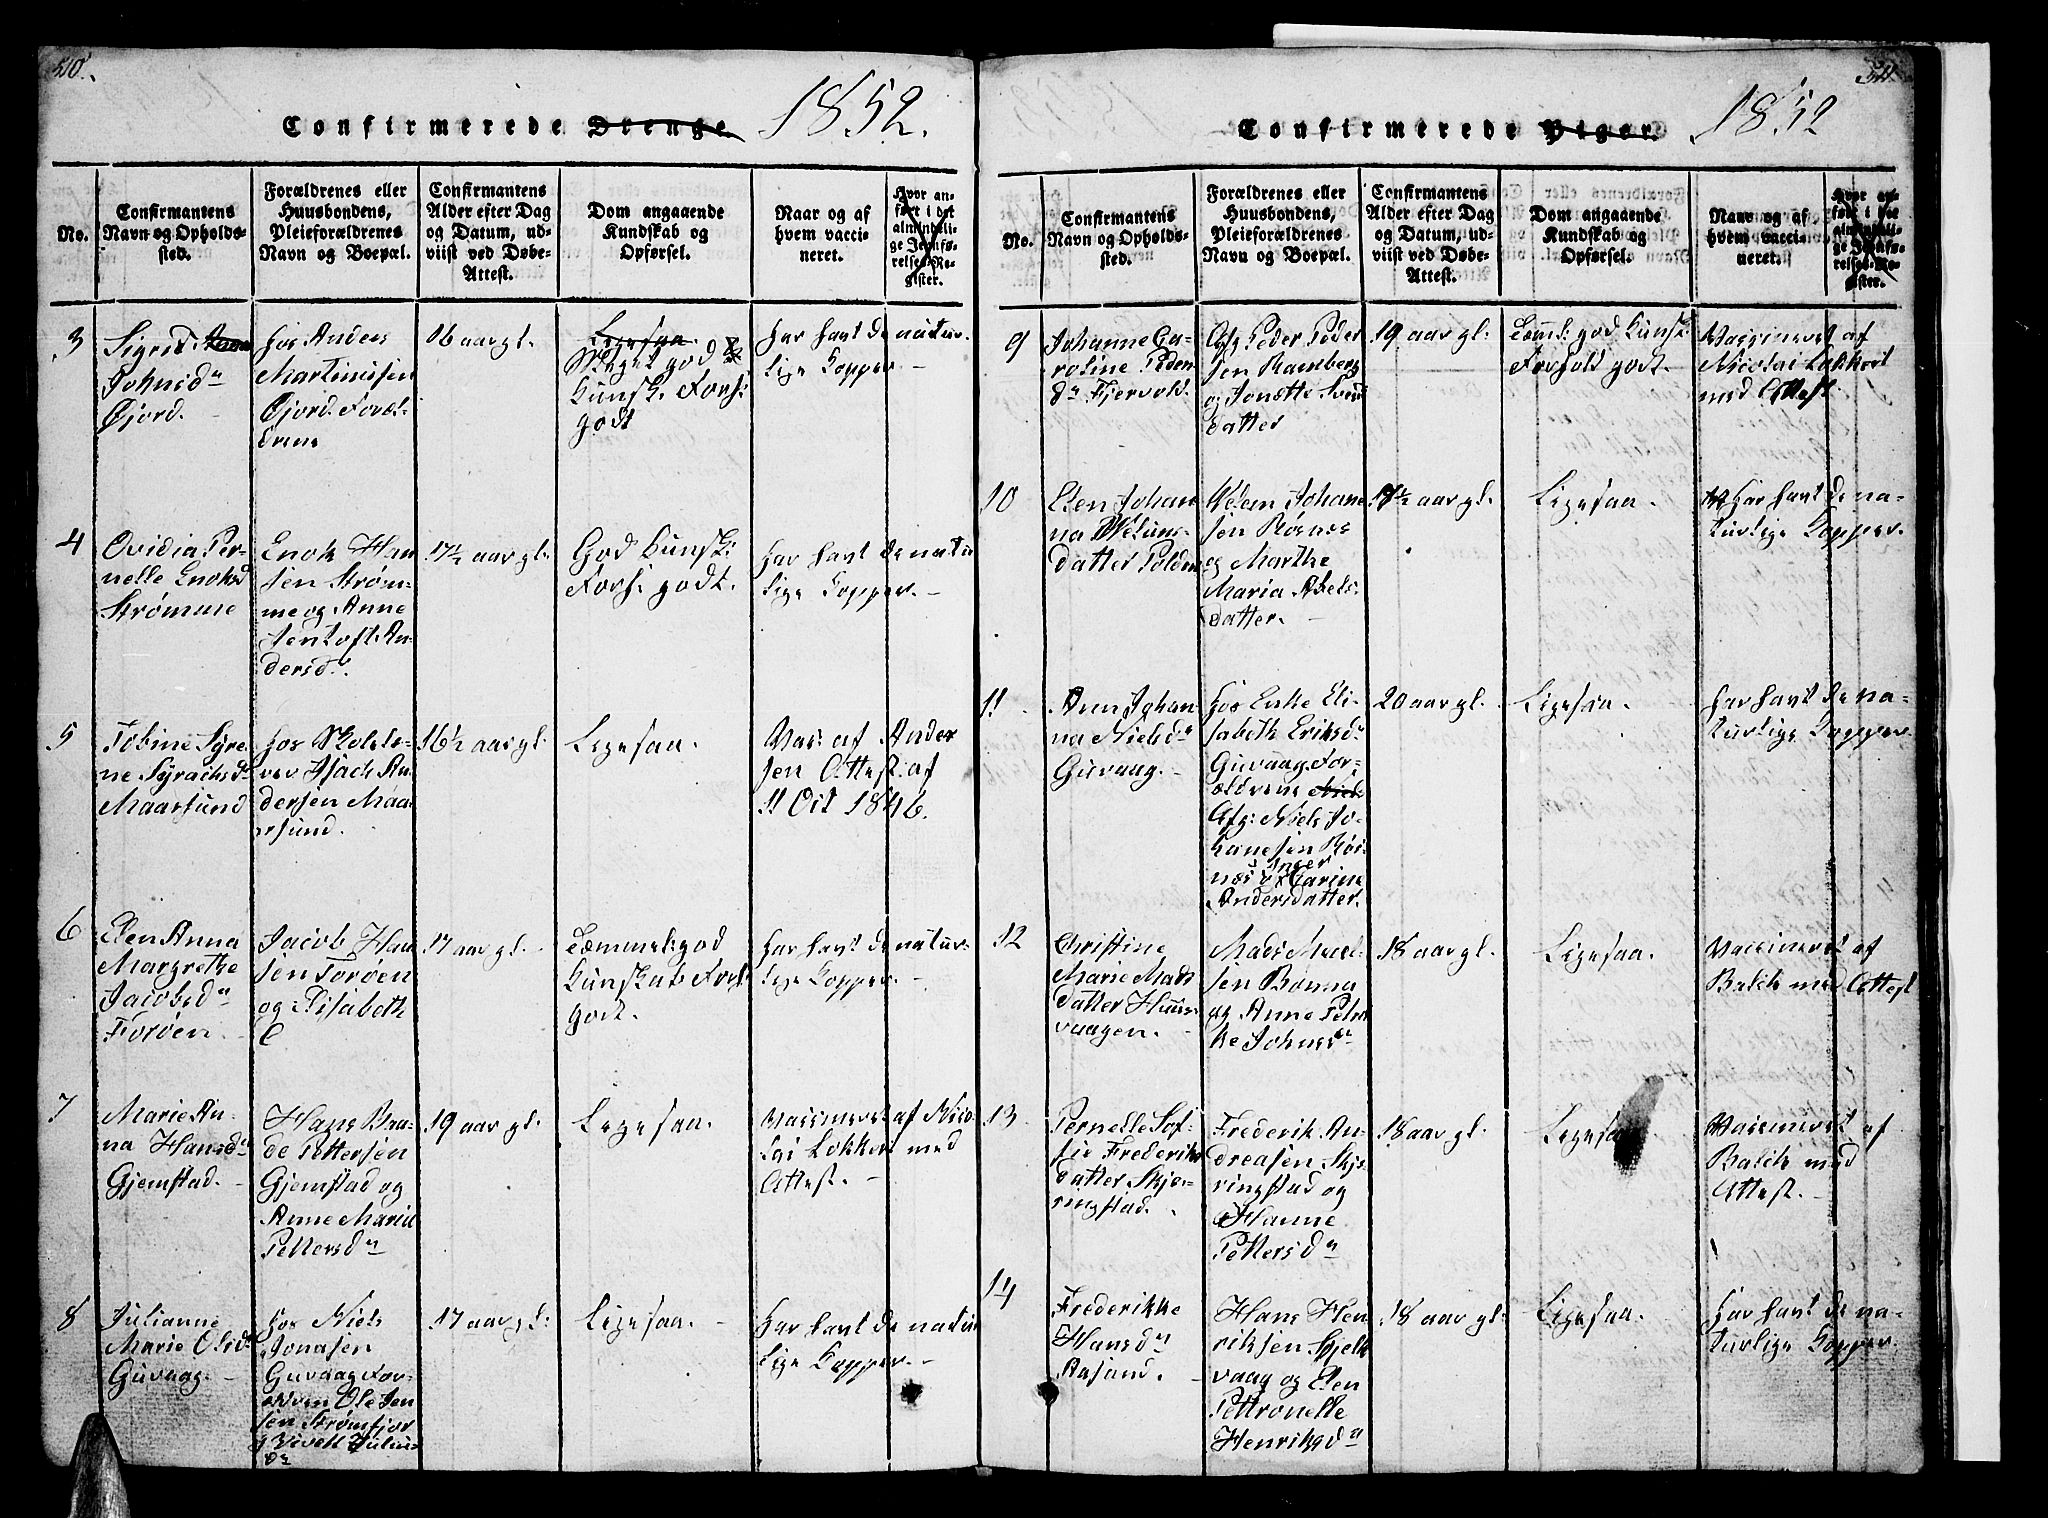 510.
Confirmerede Drenge. 1852.
No.
Confirmantens
Navn og Opholds-
sted.
Forældrenes eller
Huusbondens,
Pleieforældrenes
Navn og Boepæl.
Confirmantens
Alder efter Dag
og Datum, ud-
viist ved Døbe-
Attest.
Dom angaaende
Kundskab og
Opførsel.
Naar og af
hvem vacci-
neret.
Hvor an-
ført i det
almindeli-
ge Jevnfø-
relses-Re-
gister.
3
Sigrid
Johnsdr
Øjord.
hos Anders
Martinusen
Øjord. Foræl-
drene
16 aar gl.
Ligesaa.
Meget god
Kunsk. Forh:
godt
Har havt de natur-
lige Kopper. -
4
Ovidia Per-
nelle Enoksd
Strømme
Enok Han
sen Strøm-
me og Anne
Jentoft An-
dersd.
17½ aar gl.
God Kunsk:
Forh: godt.
Har havt de natur
lige Kopper. -
5
Tobine Syre
ne Syrachsdr
Maarsund
hos Skolelæ-
rer Isach An
dersen Maa
rsund.
16½ aar gl.
Ligesaa.
Vac: af Ander
sen Attest af
11 Oct 1846.
6
Elen Anna
Margrethe
Jacobsdr
Forøen. -
Jacob Han
sen Forøen
og Elisabeth
E
17 aar gl. -
Temmel: god
Kunskab Forh:
godt.
Har havt de natur-
lige Kopper. -
7
Marie An-
na Hansdr
Gjemstad. -
Hans Baa-
de Pettersen
Gjemstad og
Anne Maria
Pettersdr
19 aar gl.
Ligesaa.
Vassineret af Nico
lai Lokkert med
Attest. -
8
Julianne
Marie Olsdr
Guvaag. -
hos Niels
Jonasen
Guvaag For-
ældren Ole Jen
sen Strømfjor
og Sivell Julius
dr
17 aar gl:
Ligesaa. -
Har havt de natur
lige Kopper. -
511
Confirmerede Piger. 1852
No.
Confirmantens
Navn og Opholds-
sted.
Forældrenes eller
Huusbondens,
Pleieforældrenes
Navn og Boepæl.
Confirmantens
Alder efter Dag
og Datum, ud-
viist ved Døbe-
Attest.
Dom angaaende
Kundskab og
Opførsel.
Naar og af
hvem vacci-
neret.
Hvor an-
ført i det
almindeli-
ge Jevnfø-
relses-Re-
gister.
9
Johanne Ca-
roline Peder
dr Fjervold.
Afg Peder Peder
sen Ramberg
og Jonette Svens
datter
19 aar gl:
Teml: god Kunsk:
Forhold godt.
Vassineret af
Nicolai Lokkert
med Attest
10
Elen Johan
na Welums
datter Polden
Welem Johane
sen Rosnæs
og Marthe
Maria Abels
datter. -
17½ aar gl.
Ligesaa.
Har havt de na-
turlige Kopper.
11
Ann Johan
na Nielsdr
Guvaag. -
hos Enke Eli
sabeth Eriksdr
Guvaag. For-
ældrene
Afg: Niels Jo-
hanesen Rös-
næs & Inger Karine
Andersdatter.
20 aar gl.
Ligesaa.
Har havt de na-
turlige Kopper
12
Christine
Marie Mads
datter Huus
vaagen. -
Mads Mickel
sen Bønna
og Anne Petri
ke Johnsdr
18 aar gl.
Ligesaa.
Vassineret af
Balck med Attest
13
Pernelle Sof-
fie Frederiks
datter Skjæ-
ringstad.
Frederik An-
dreasen Skjæ-
ringstad og
Hanne
Pettersdr
18 aar gl.
Ligesaa
Vassineret af
Balck med
Attest. -
14
Frederikke
Hansdr
Aasand. -
Hans Hen
riksen Skjelt
vaag og Elen
Pettronelle
Henriksdr
18 aar gl.
Ligesaa.
Har havt de na-
turlige Kopper.